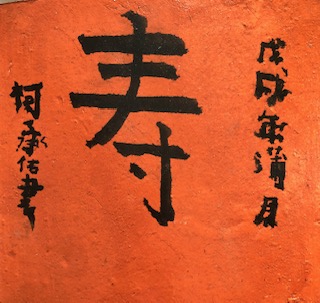 戊戌年蒲月
寿
柯承佑書